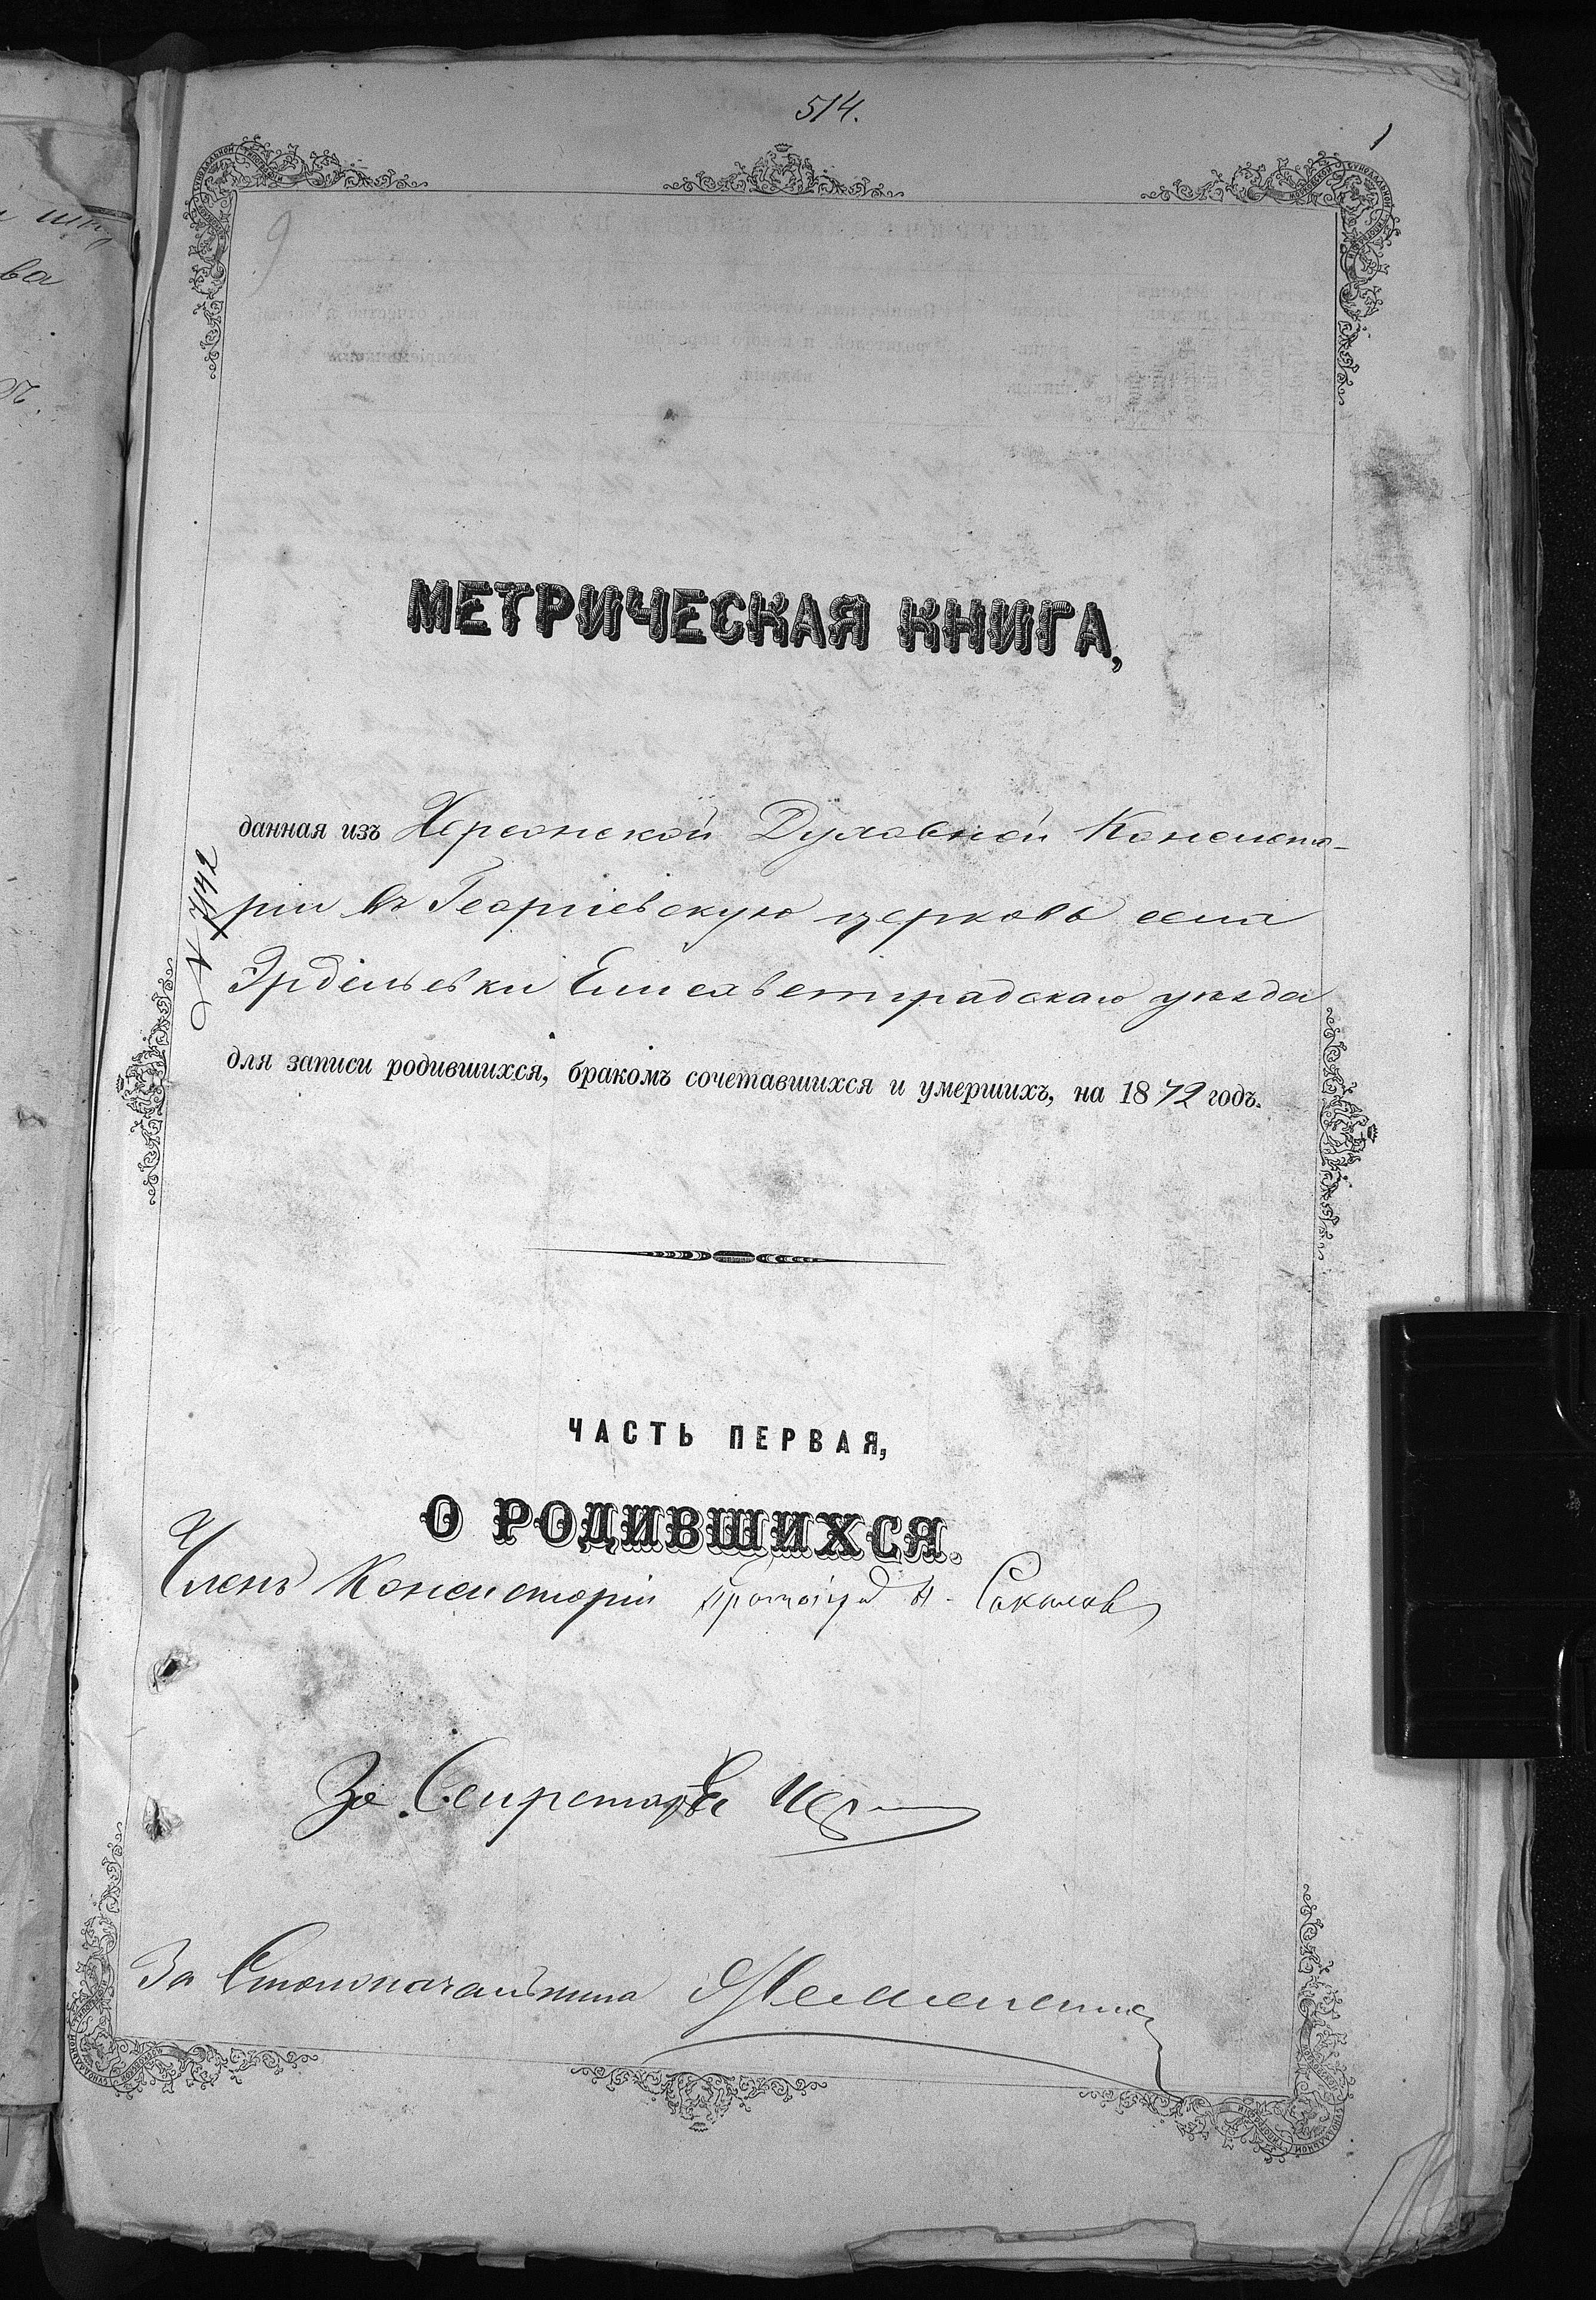 514.
1
МЕТРИЧЕСКАЯ КНИГА,
данная изъ Херсонской Духовной Консисто-
ріи въ Георгіевскую церковь села
Эрдельевки Елисаветградскаго уѣзда
№ 7142
для записи родившихся, бракомъ сочетавшихся и умершихъ, на 1872 годъ.
ЧАСТЬ ПЕРВАЯ,
О РОДИВШИХСЯ.
Членъ Консисторіи Протоіерей Соколовъ
За Секретаря
За Столоначальника